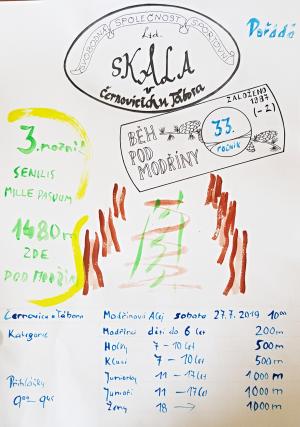 SVOBODNÁ SPOLEČNOST SPORTOVNÍ
Ltd.
Pořádá
SKÁLA
v
Černovicích u Tábora
ZALOŽENO
1987
(-2)
BĚH
POD
MODŘÍNY
33.
ročník
3. ročník
SENILIS
MILLE PASUUM
1480m
ZDE
POD MODŘÍN
Černovice u Tábora Modřínová Alej sobota 27.7.2019 10 00
Kategorie Modřínci děti do 6 let 200m
Holky 7-10 let 500m
Kluci 7-10 let 500m
Juniorky 11-17 let 1000m
Přihlášky Junioři 11-17 let 1000m
Ženy 18 → 1000m